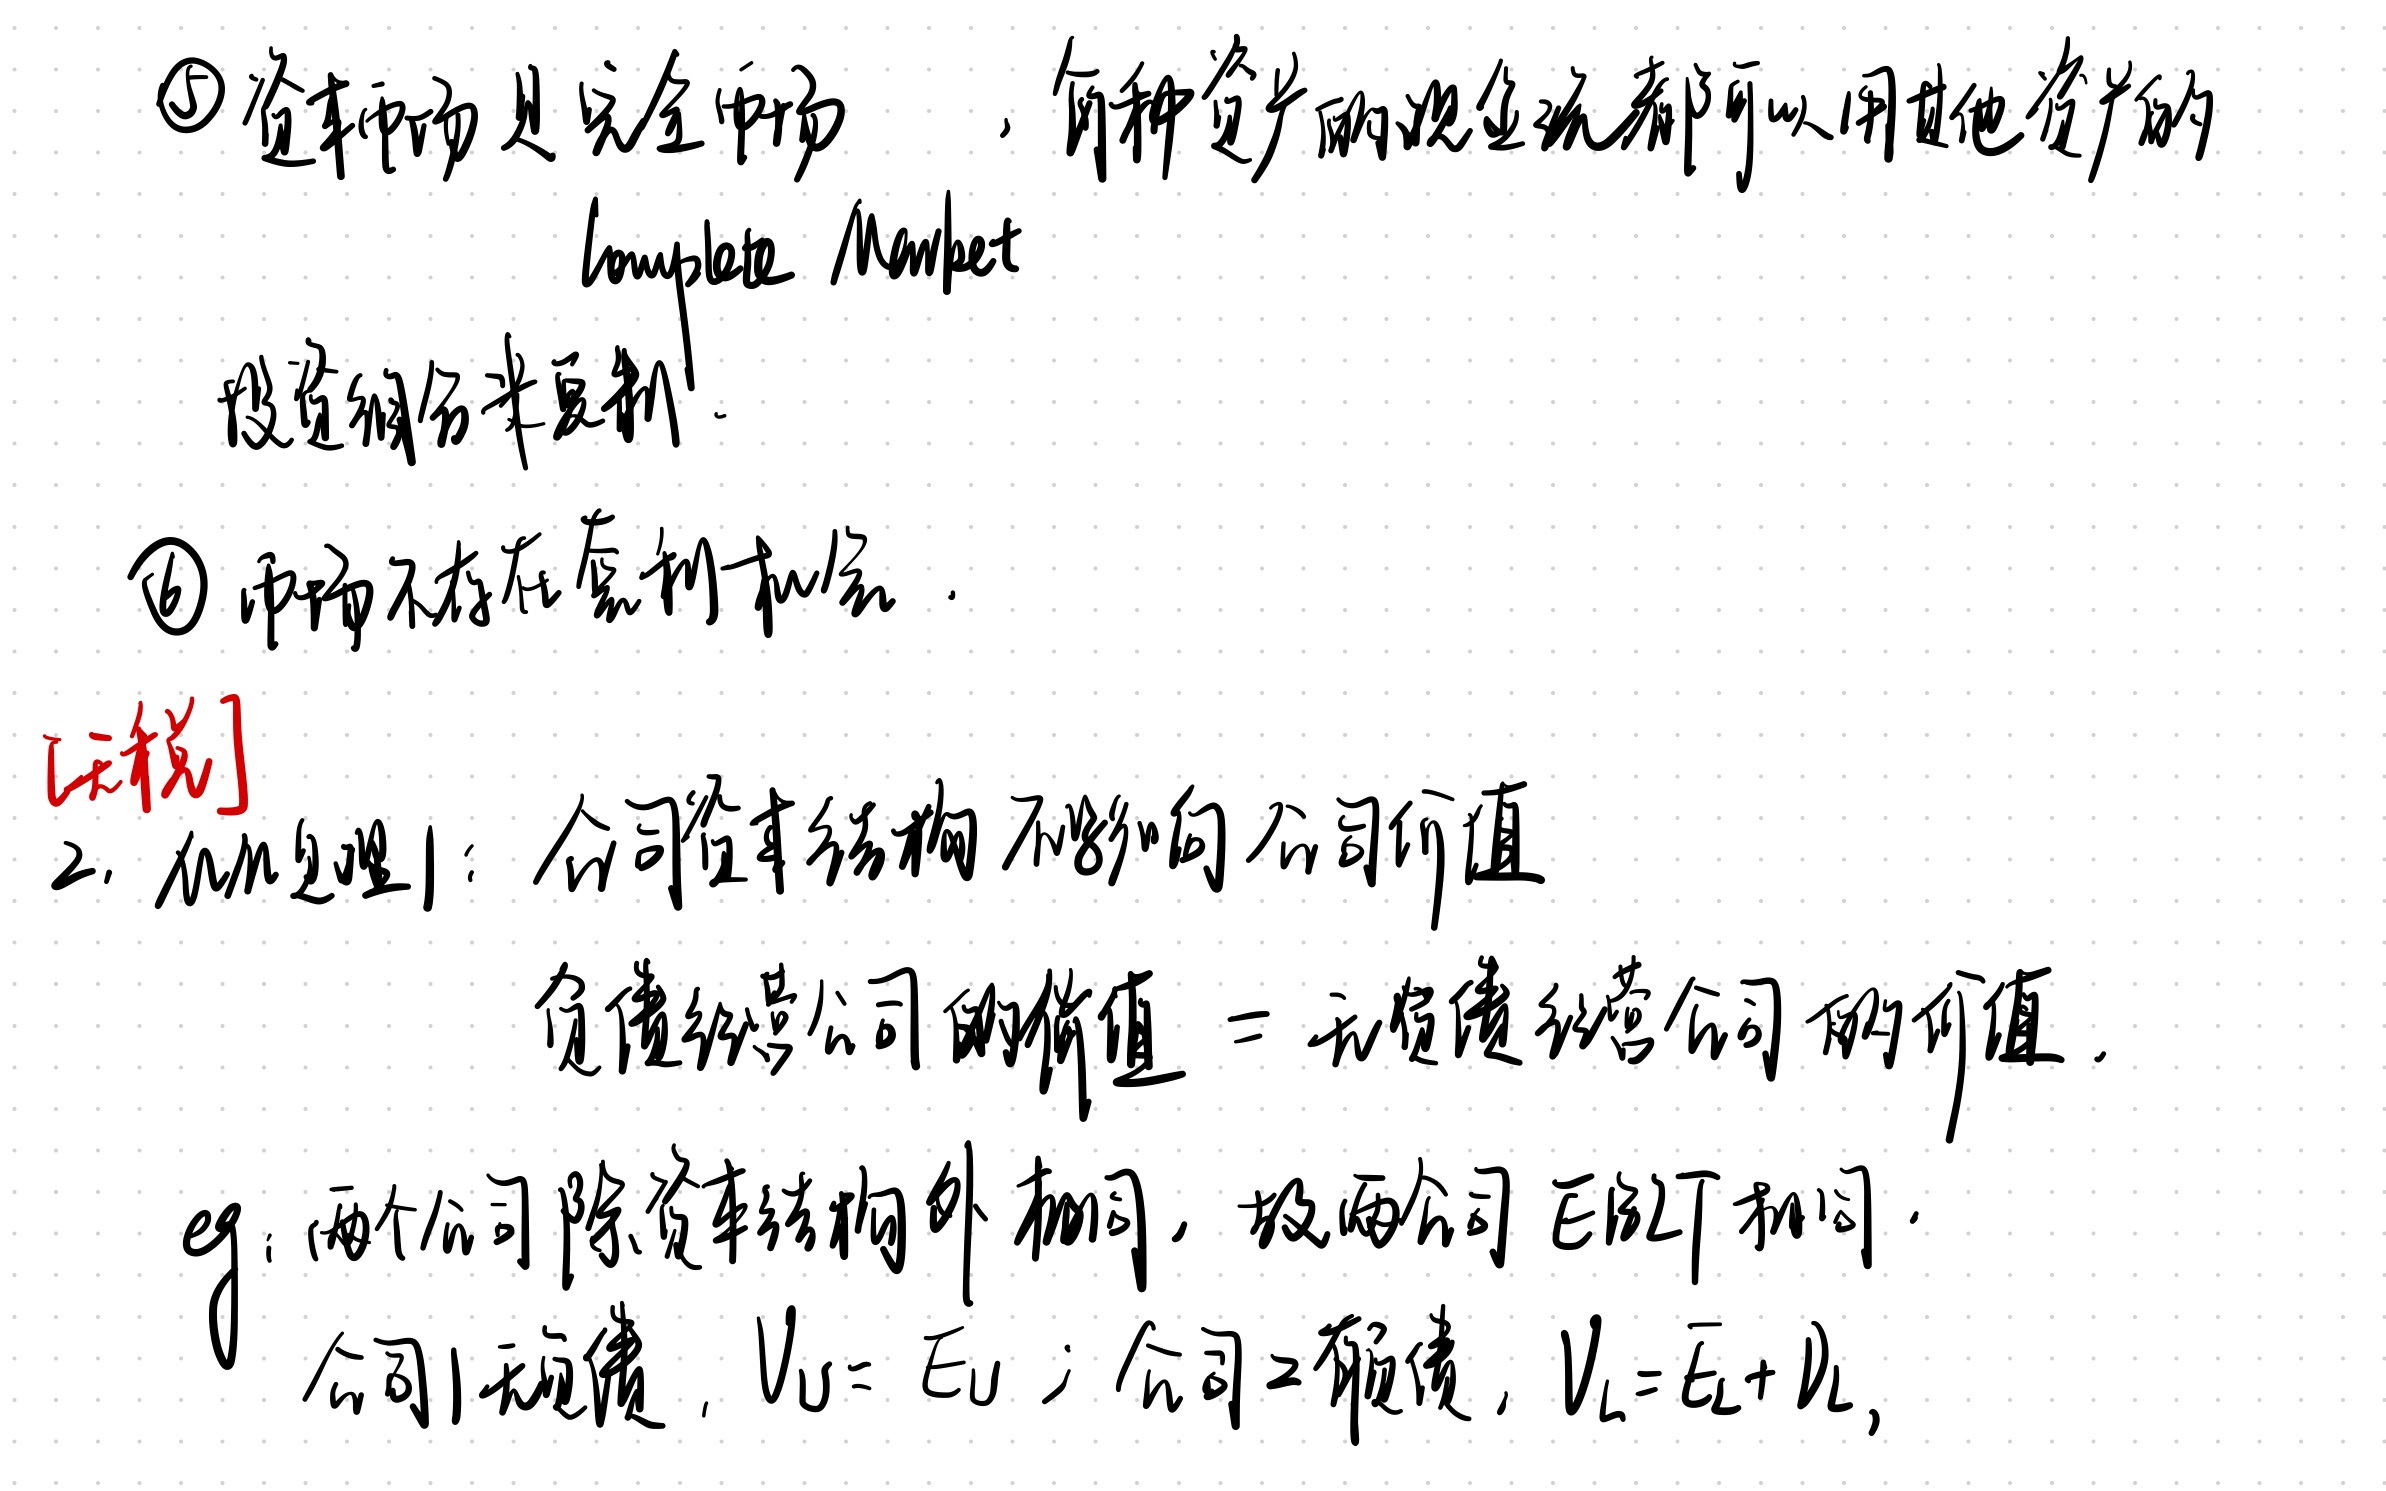 ⑤ 资本市场是完全市场，每种资产的现金流都可以用其他资产的
Complete Market
投资组合来复制.
⑥ 市场不存在套利机会.
[无税]
2. MM定理1: 公司资本结构不影响公司价值
负债经营公司的价值 = 无负债经营公司的价值.
eg: 两个公司除资本结构外相同, 故两公司EBIT相同.
公司1无负债, VU = EU ; 公司2有负债, VL = EL + DL,